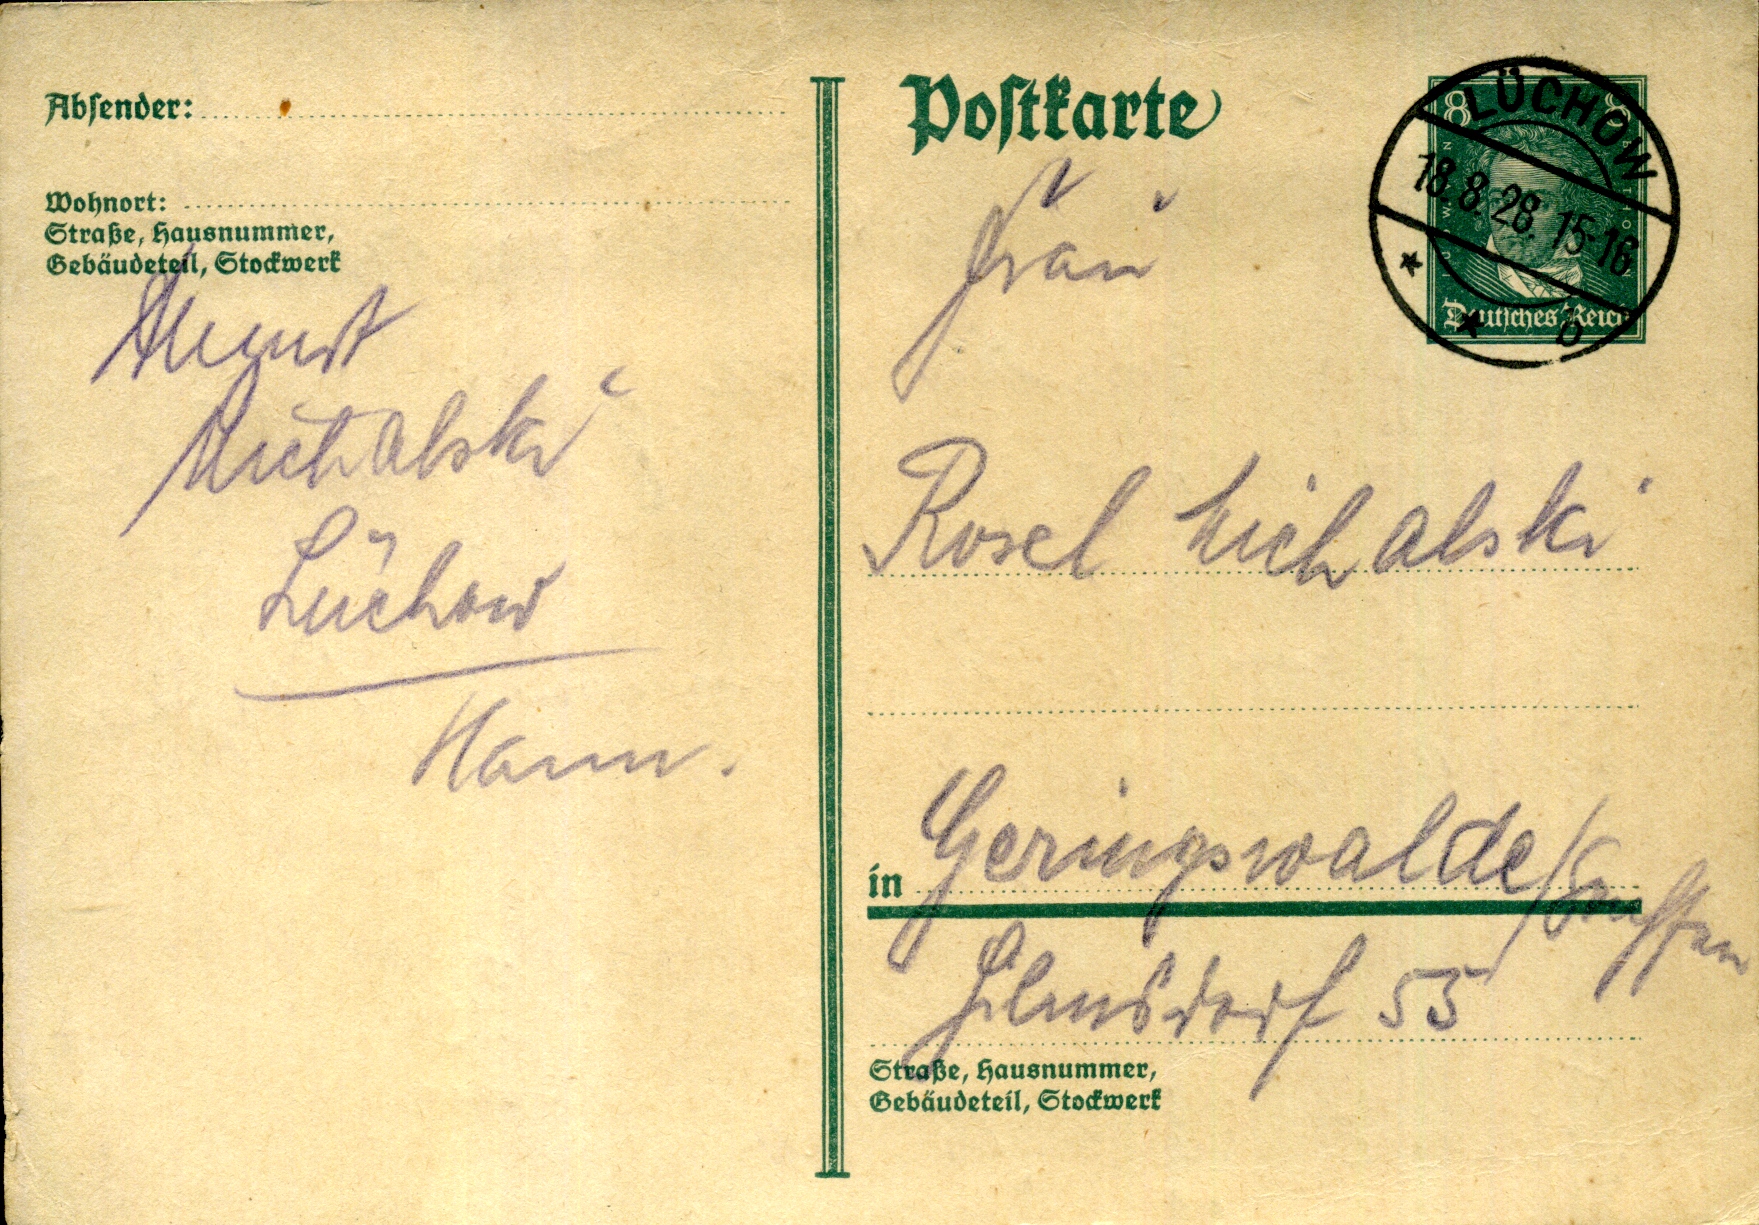 Absender:
Wohnort:
Straße, Hausnummer,
Gebäudeteil, Stockwerk
August
Michalski
Lüchow
Hann.
Postkarte
8 8
LÜCHOW
18.8.28. 15-16
* * b
Deutsches Reich
Frau
Rosel Michalski
in Geringswalde/Sachsen
Hilmsdorf 55
Straße, Hausnummer,
Gebäudeteil, Stockwerk